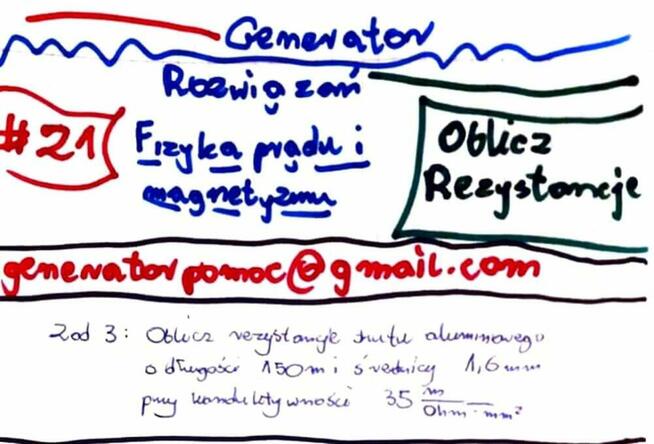 Generator
Rozwiązań
#21
Fizyka prądu i
magnetyzmu
Oblicz
Rezystancje
generatorpomoc@gmail.com
Zad 3: Oblicz rezystancje drutu aluminiowego
o długości 150m i średnicy 1,6mm
przy konduktywności 35 m/Ohm·mm²